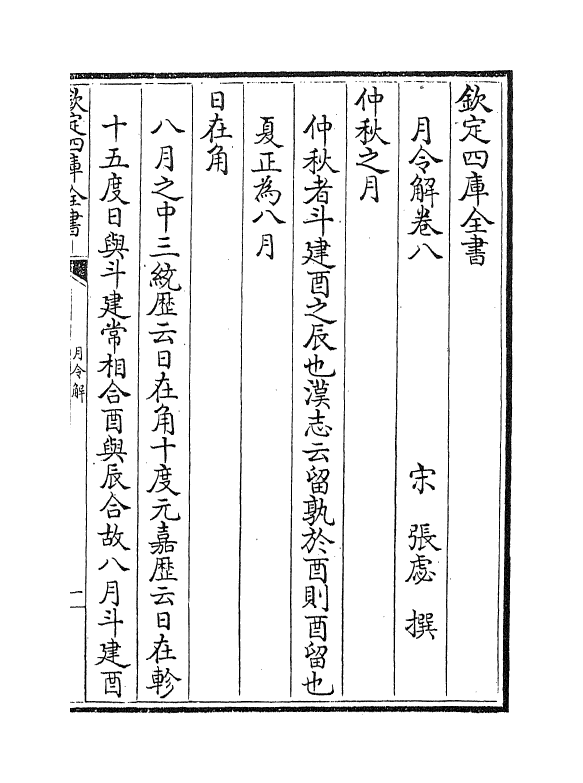 欽定四庫全書
月令解卷八
宋 張虙 撰
仲秋之月
仲秋者斗建酉之辰也漢志云留孰於酉則酉留也
夏正為八月
日在角
八月之中三統歴云日在角十度元嘉歴云日在軫
十五度日與斗建常相合酉與辰合故八月斗建酉
欽定四庫全書
月令解
一